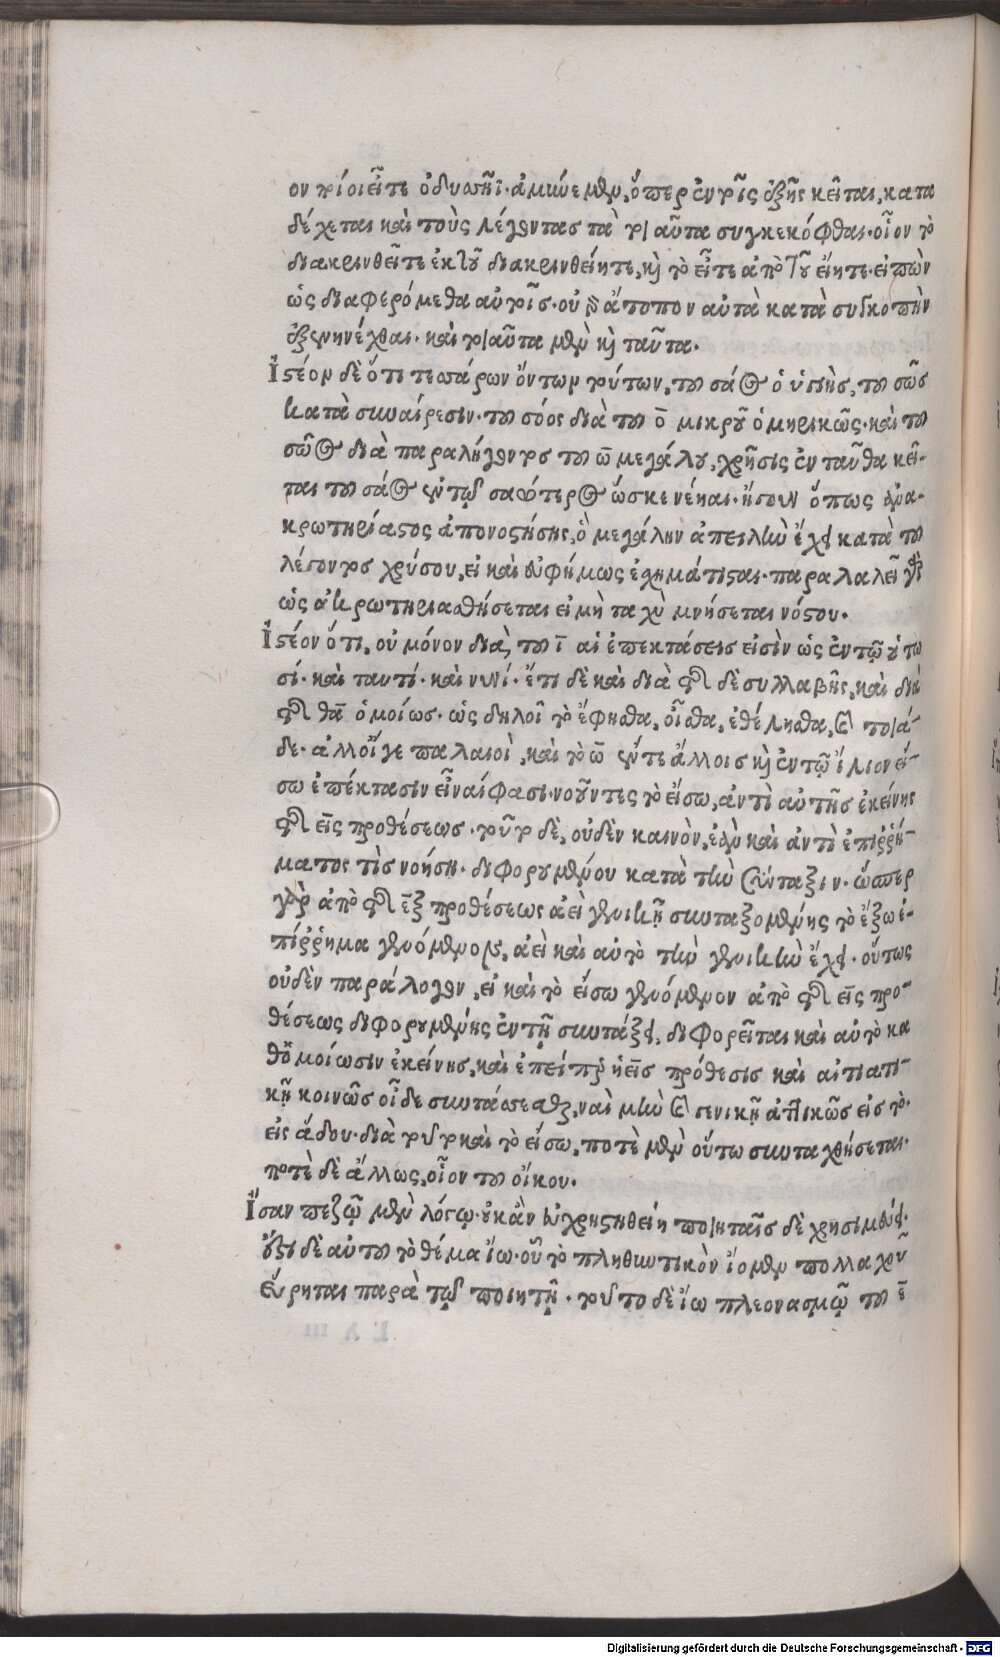 ον τοιοῖεἶτε ὀδυσσῆϊ· ἀμύνεμεν, ὅπερ ἐν τοῖς ἑξῆς κεῖται, κατα
δέχεται καὶ τοὺς λέγοντασ τὰ τοιαῦτα συγκεκόφθαι· οἷον τὸ
διακρινθεῖτε ἐκ τοῦ διακρινθείητε, καὶ τὸ εἶτε ἀπὸ τοῦ εἴητε· εἰπὼν
ὡς διαφερόμεθα αὐτοῖσ· οὐ δὲ ἄτοπον αὐτὰ κατὰ συγκοπὴν
ἐξενηνέχθαι· καὶ τοιαῦτα μὲν καὶ ταῦτα.
Ἰστέον δὲ ὅτι τεσσάρων ὄντων τούτων, τοῦ σάος ὁ ὑγιὴσ, τοῦ σῶσ
κατὰ συναίρεσιν· τοῦ σόοσ διὰ τοῦ ο μικροῦ ὁμηρικῶς· καὶ τοῦ
σῶος διὰ παραλήγοντοσ τοῦ ω μεγάλου, χρῆσις ἐνταῦθα κεῖ-
ται τοῦ σάος ἐν τῷ σαώτερος ὥσκε νέηαι· ἤγουν ὅπως ἀνα-
κρωτηρίαστος ἀπονοστήσῃς, ὃ μεγάλην ἀπειλὴν ἔχει κατὰ τοῦ
λέγοντοσ χρύσου, εἰ καὶ εὐφήμως ἐσχημάτισται· παραλαλεῖ γὰρ
ὡς ἀκρωτηριασθήσεται εἰ μὴ ταχὺ μνήσεται νόστου.
Ἰστέον ὅτι, οὐ μόνον διὰ τοῦ ι αἱ ἐπεκτάσεισ εἰσὶν ὡς ἐν τῷ οὑτω
σί· καὶ ταυτί· καὶ νυνί· ἔτι δὲ καὶ διὰ τῆς δε συλλαβῆς, καὶ διὰ
τῆς θα ὁμοίωσ· ὡς δηλοῖ τὸ ἔφησθα, οἶσθα, ἐθέλησθα, καὶ τοιά-
δε· ἀλλ' οἵγε παλαιοὶ, καὶ τὸ ω ἔν τε ἄλλοισ καὶ ἐν τῷ ἴλιον εἴ-
σω ἐπέκτασιν εἶναί φασι· νοοῦντες τὸ εἴσω, ἀντὶ αὐτῆσ ἐκείνης
τῆς εἰς προθέσεωσ· τοῦτο δὲ, οὐδὲν καινὸν, ἐὰν καὶ ἀντὶ ἐπιῤῥή-
ματος τὶσ νοήσῃ· διφορουμένου κατὰ τὴν σύνταξιν· ὥσπερ
γὰρ ἀπὸ τῆς ἐξ προθέσεως ἀεὶ γενικῇ συνταξομένης τὸ ἔξω ἐ-
πίῤῥημα γενόμενον, ἀεὶ καὶ αὐτὸ τὴν γενικὴν ἔχει· οὕτως
οὐδὲν παράλογον, εἰ καὶ τὸ εἴσω γενόμενον ἀπὸ τῆς εἰς προ-
θέσεως διφορουμένης ἐν τῇ συντάξει, διφορεῖται καὶ αὐτὸ κα
θ' ὁμοίωσιν ἐκείνησ, καὶ ἐπείπερ ἡ εἰσ πρόθεσισ καὶ αἰτιατι-
κῇ κοινῶσ οἶδε συντάσσεσθαι, ναὶ μὴν καὶ γενικῇ ἀττικῶσ εἰσ τὸ·
εἰς ᾅδου· διὰ τοῦτο καὶ τὸ εἴσω, ποτὲ μὲν οὕτω συνταχθήσεται·
ποτὲ δὲ ἄλλως, οἷον τοῦ οἴκου.
Ἴσαν πεζῷ μὲν λόγῳ· οὐκ ἂν εὐχρηστηθείη ποιηταῖσ δὲ χρησιμεύει·
ἔστι δὲ αὐτοῦ τὸ θέμα ἴω· οὗ τὸ πληθυντικὸν ἴομεν πολλαχοῦ
εὕρηται παρὰ τῷ ποιητῇ· τοῦτο δὲ ἴω πλεονασμῷ τοῦ ε
Digitalisierung gefördert durch die Deutsche Forschungsgemeinschaft - DFG